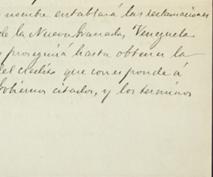 nombre entablará las reclamaciones
de la Nueva Granada, Venezuela
proseguir hasta obtener la
del crédito que corresponde á
Gobiernos citados, y los términos